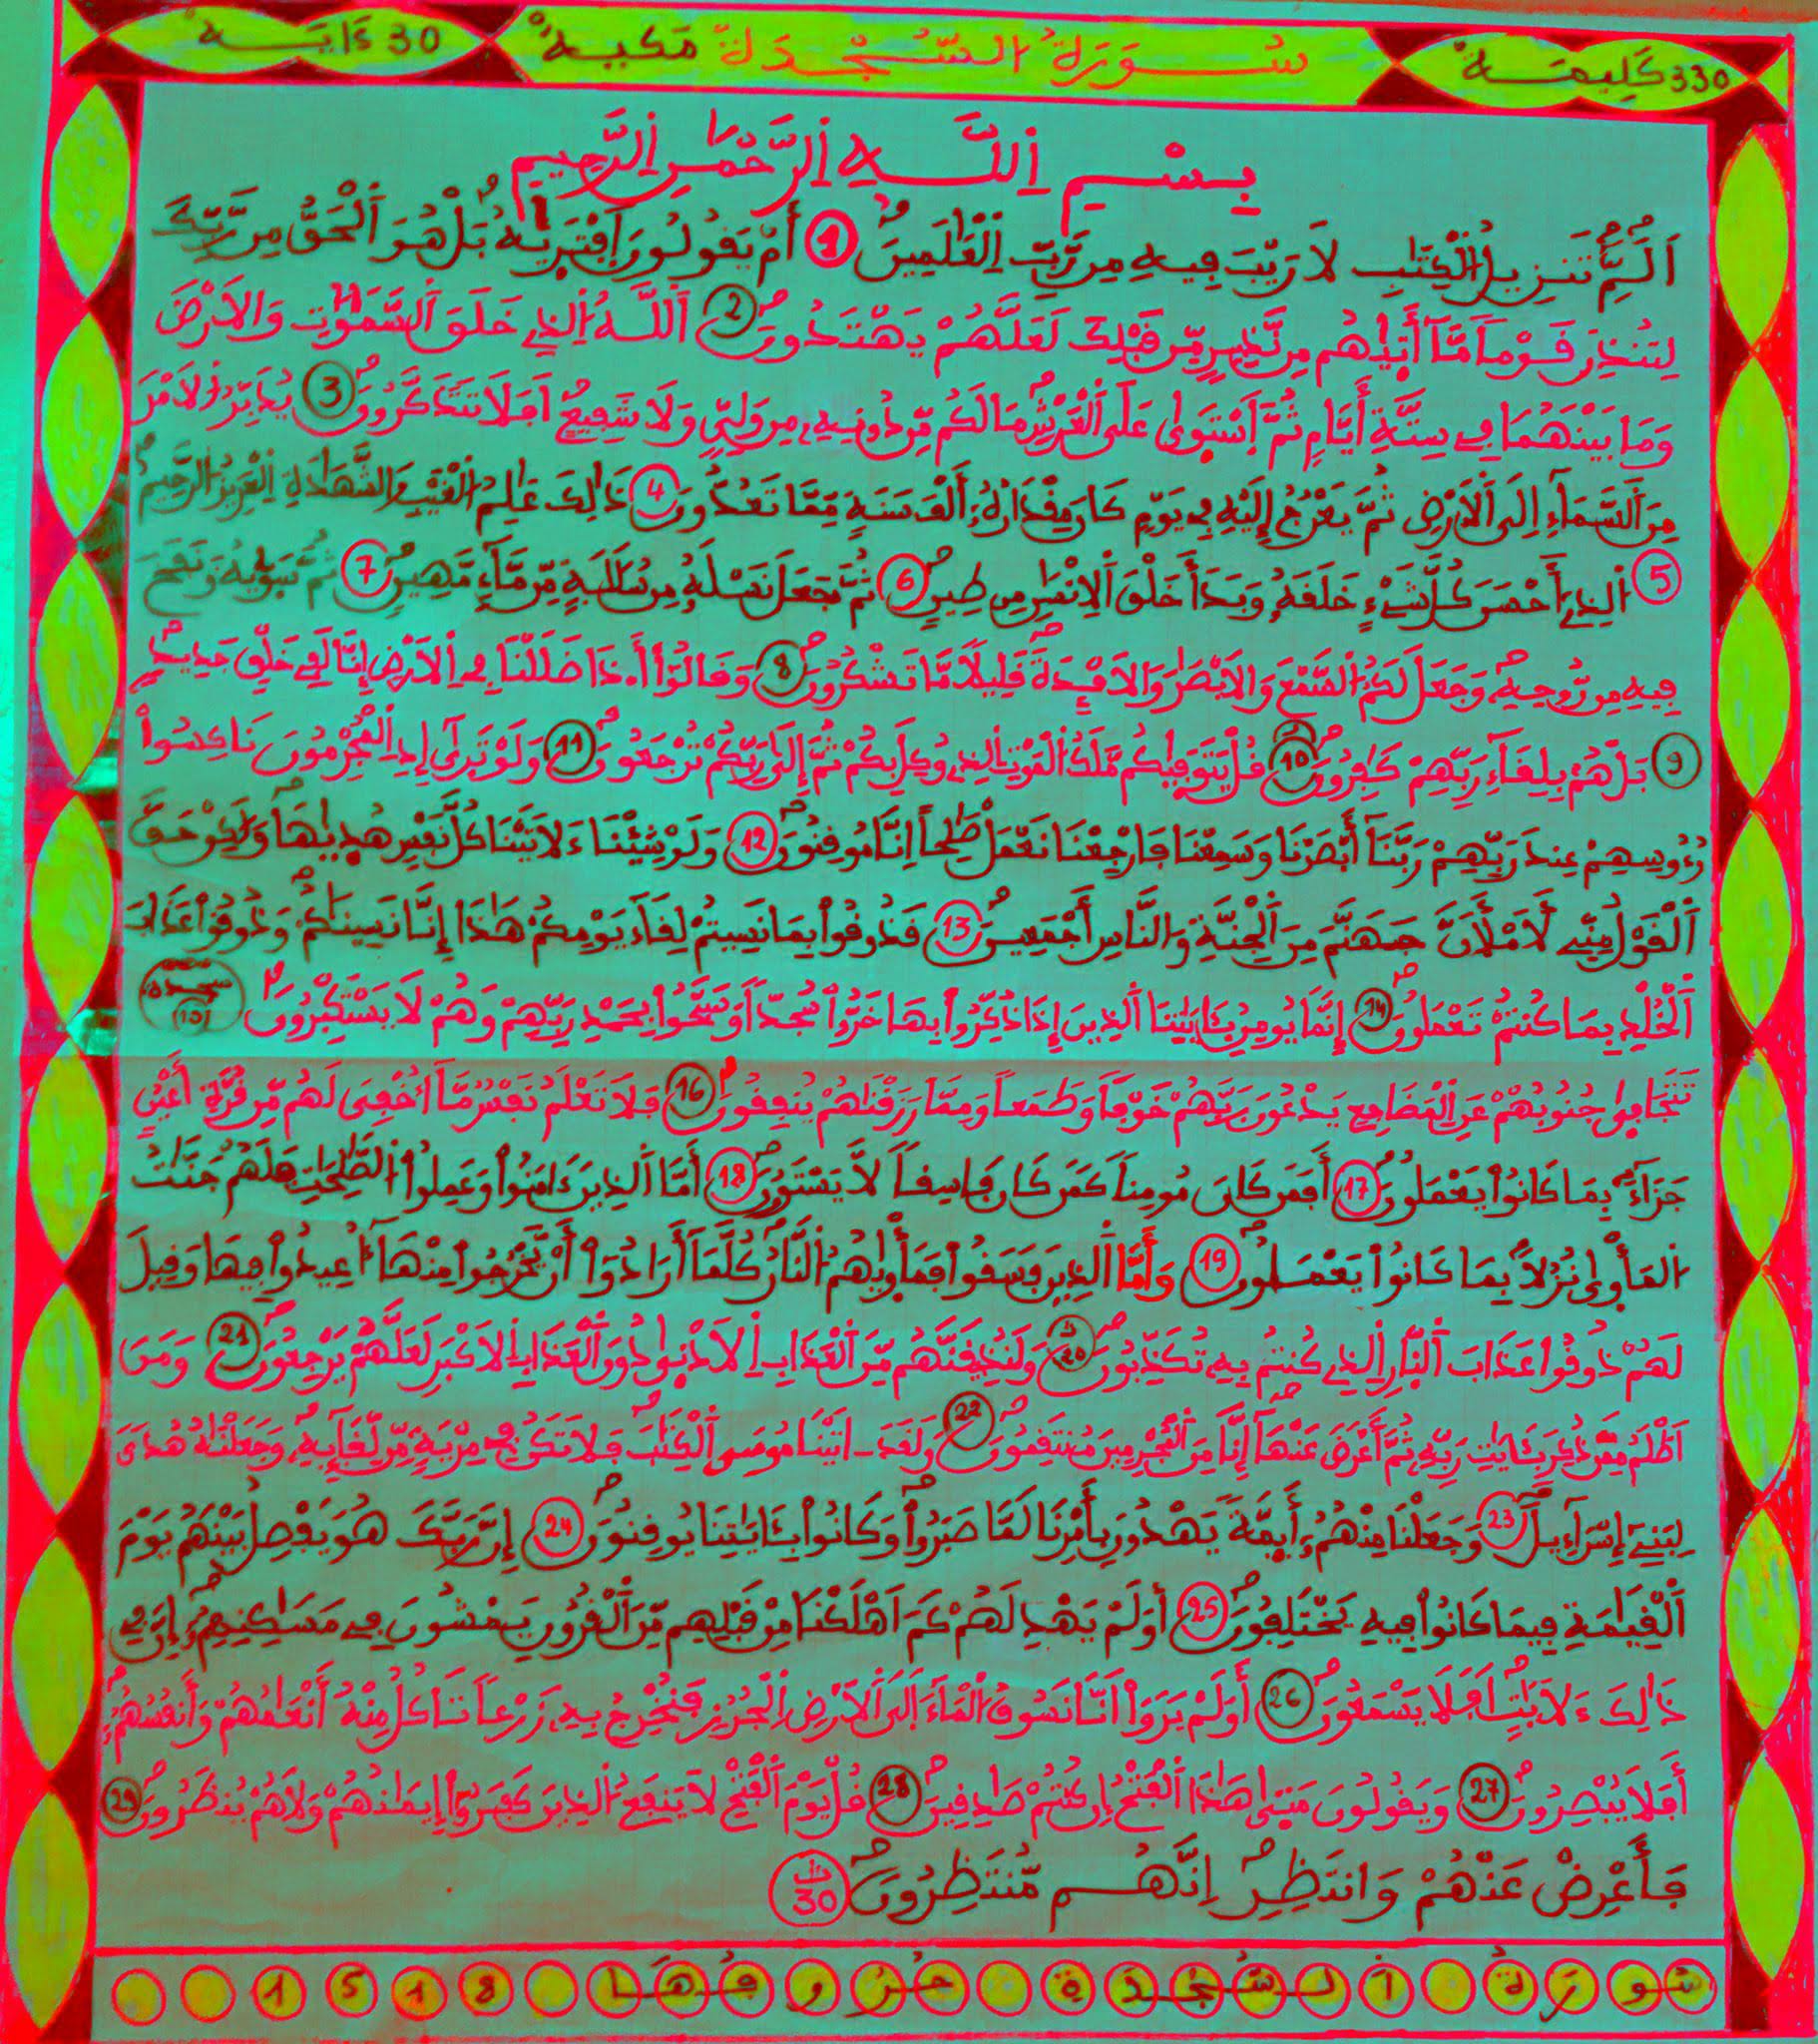 330 كَلِيمَـة سُـورَةُ السَّجْدَةِ مَكِّيَة 30 ءَايَـة
بِسْمِ اِللَّـهِ اِلرَّحْمَٰنِ اِلرَّحِيمِ
أَلَٓمِّٓ تَنزِيلُ اُلْكِتَٰبِ لَا رَيْبَ فِيهِ مِن رَّبِّ اِلْعَٰلَمِينَ 1 أَمْ يَقُولُونَ اَفْتَرَيٰهُ بَلْ هُوَ اَلْحَقُّ مِن رَّبِّكَ
لِتُنذِرَ قَوْماً مَّآ أَتَيٰهُم مِّن نَّذِيرٍ مِّن قَبْلِكَ لَعَلَّهُمْ يَهْتَدُونَ 2 اَللَّهُ اُلذِے خَلَقَ اَلسَّمَٰوَٰتِ وَالَارْضَ
وَمَا بَيْنَهُمَا فِے سِتَّةِ أَيَّامٍ ثُمَّ اَسْتَوَىٰ عَلَى اَلْعَرْشِ مَا لَكُم مِّن دُونِهِۦ مِنْ وَلِيٍّ وَلَا شَفِيعٍ اَفَلَا تَتَذَكَّرُونَ 3 يُدَبِّرُ اُلَامْرَ
مِنَ اَلسَّمَآءِ اِلَى اَلَارْضِ ثُمَّ يَعْرُجُ إِلَيْهِ فِے يَوْمٍ كَانَ مِقْدَارُهُۥٓ أَلْفَ سَنَةٍ مِّمَّا تَعُدُّونَ 4 ذَٰلِكَ عَٰلِمُ اُلْغَيْبِ وَالشَّهَٰدَةِ اِلْعَزِيزُ اُلرَّحِيمُ
5 اُلذِےٓ أَحْسَنَ كُلَّ شَےْءٍ خَلَقَهُۥ وَبَدَأَ خَلْقَ اَلِانسَٰنِ مِن طِينٍ 6 ثُمَّ جَعَلَ نَسْلَهُۥ مِن سُلَٰلَةٍ مِّن مَّآءٍ مَّهِينٍ 7 ثُمَّ سَوَّيٰهُ وَنَفَخَ
فِيهِ مِن رُّوحِهِۦ وَجَعَلَ لَكُمُ اُلسَّمْعَ وَالَابْصَٰرَ وَالَافْـِٕدَةَ قَلِيلاً مَّا تَشْكُرُونَ 8 وَقَالُوٓاْ أَ.ذَا ضَلَلْنَا فِے اِلَارْضِ إِنَّا لَفِے خَلْقٍ جَدِيدٍ
9 بَلْ هُم بِلِقَآءِ رَبِّهِمْ كَٰفِرُونَ 10 قُلْ يَتَوَفَّيٰكُم مَّلَكُ اُلْمَوْتِ اِلذِے وُكِّلَ بِكُمْ ثُمَّ إِلَىٰ رَبِّكُمْ تُرْجَعُونَ 11 وَلَوْ تَرَىٰٓ إِذِ اِلْمُجْرِمُونَ نَاكِسُواْ
رُءُوسِهِمْ عِندَ رَبِّهِمْ رَبَّنَآ أَبْصَرْنَا وَسَمِعْنَا فَارْجِعْنَا نَعْمَلْ صَٰلِحاً اِنَّا مُوقِنُونَ 12 وَلَوْ شِيْنَا ءَلَاتَيْنَا كُلَّ نَفْسٍ هُدَيٰهَا وَلَٰكِنْ حَقَّ
اَلْقَوْلُ مِنِّے لَأَمْلَأَنَّ جَهَنَّمَ مِنَ اَلْجِنَّةِ وَالنَّاسِ أَجْمَعِينَ 13 فَذُوقُواْ بِمَا نَسِيتُمْ لِقَآءَ يَوْمِكُمْ هَٰذَا إِنَّا نَسِينَٰكُمْ وَذُوقُواْ عَذَابَ
اَلْخُلْدِ بِمَا كُنتُمْ تَعْمَلُونَ 14 إِنَّمَا يُومِنُ بِـَٔايَٰتِنَا اَلذِينَ إِذَا ذُكِّرُواْ بِهَا خَرُّواْ سُجَّداً وَسَبَّحُواْ بِحَمْدِ رَبِّهِمْ وَهُمْ لَا يَسْتَكْبِرُونَ سجدة (10)
تَتَجَافَىٰ جُنُوبُهُمْ عَنِ اِلْمَضَاجِعِ يَدْعُونَ رَبَّهُمْ خَوْفاً وَطَمَعاً وَمِمَّا رَزَقْنَٰهُمْ يُنفِقُونَ 16 فَلَا تَعْلَمُ نَفْسٌ مَّآ أُخْفِيَ لَهُم مِّن قُرَّةِ أَعْيُنٍ
جَزَآءً بِمَا كَانُواْ يَعْمَلُونَ 17 أَفَمَن كَانَ مُومِناً كَمَن كَانَ فَاسِقاً لَّا يَسْتَوُونَ 18 أَمَّا اَلذِينَ ءَامَنُواْ وَعَمِلُواْ اُلصَّٰلِحَٰتِ فَلَهُمْ جَنَّٰتُ
اُلْمَأْوَىٰ نُزُلاً بِمَا كَانُواْ يَعْمَلُونَ 19 وَأَمَّا اَلذِينَ فَسَقُواْ فَمَأْوَيٰهُمُ اُلنَّارُ كُلَّمَآ أَرَادُوٓاْ أَنْ يَّخْرُجُواْ مِنْهَآ أُعِيدُواْ فِيهَا وَقِيلَ
لَهُمْ ذُوقُواْ عَذَابَ اَلنَّارِ اِلذِے كُنتُم بِهِۦ تُكَذِّبُونَ 20 وَلَنُذِيقَنَّهُم مِّنَ اَلْعَذَابِ اِلَادْنَىٰ دُونَ اَلْعَذَابِ اِلَاكْبَرِ لَعَلَّهُمْ يَرْجِعُونَ 21 وَمَنَ
اَظْلَمُ مِمَّن ذُكِّرَ بِـَٔايَٰتِ رَبِّهِۦ ثُمَّ أَعْرَضَ عَنْهَآ إِنَّا مِنَ اَلْمُجْرِمِينَ مُنتَقِمُونَ 22 وَلَقَدَ ـ اتَيْنَا مُوسَى اَلْكِتَٰبَ فَلَا تَكُن فِے مِرْيَةٍ مِّن لِّقَآئِهِۦ وَجَعَلْنَٰهُ هُدىً
لِّبَنِےٓ إِسْرَآءِيلَ 23 وَجَعَلْنَا مِنْهُمُۥٓ أَيِمَّةً يَهْدُونَ بِأَمْرِنَا لَمَّا صَبَرُواْ وَكَانُواْ بِـَٔايَٰتِنَا يُوقِنُونَ 24 إِنَّ رَبَّكَ هُوَ يَفْصِلُ بَيْنَهُمْ يَوْمَ
اَلْقِيَٰمَةِ فِيمَا كَانُواْ فِيهِ يَخْتَلِفُونَ 25 أَوَلَمْ يَهْدِ لَهُمْ كَمَ اَهْلَكْنَا مِن قَبْلِهِم مِّنَ اَلْقُرُونِ يَمْشُونَ فِے مَسَٰكِنِهِمُۥٓ إِنَّ فِے
ذَٰلِكَ ءَلَايَٰتٍ اَفَلَا يَسْمَعُونَ 26 أَوَلَمْ يَرَوَاْ اَنَّا نَسُوقُ اُلْمَآءَ اِلَى اَلَارْضِ اِلْجُرُزِ فَنُخْرِجُ بِهِۦ زَرْعاً تَاكُلُ مِنْهُ أَنْعَٰمُهُمْ وَأَنفُسُهُمُۥٓ
أَفَلَا يُبْصِرُونَ 27 وَيَقُولُونَ مَتَىٰ هَٰذَا اَلْفَتْحُ إِن كُنتُمْ صَٰدِقِينَ 28 قُلْ يَوْمَ اَلْفَتْحِ لَا يَنفَعُ اُلذِينَ كَفَرُوٓاْ إِيمَٰنُهُمْ وَلَا هُمْ يُنظَرُونَ 29
فَأَعْرِضْ عَنْهُمْ وَانتَظِرِ اِنَّهُـم مُّنتَظِرُونَ 30
سُورَةُ اَلسَّجْدَةِ حُرُوفُهَا 1518